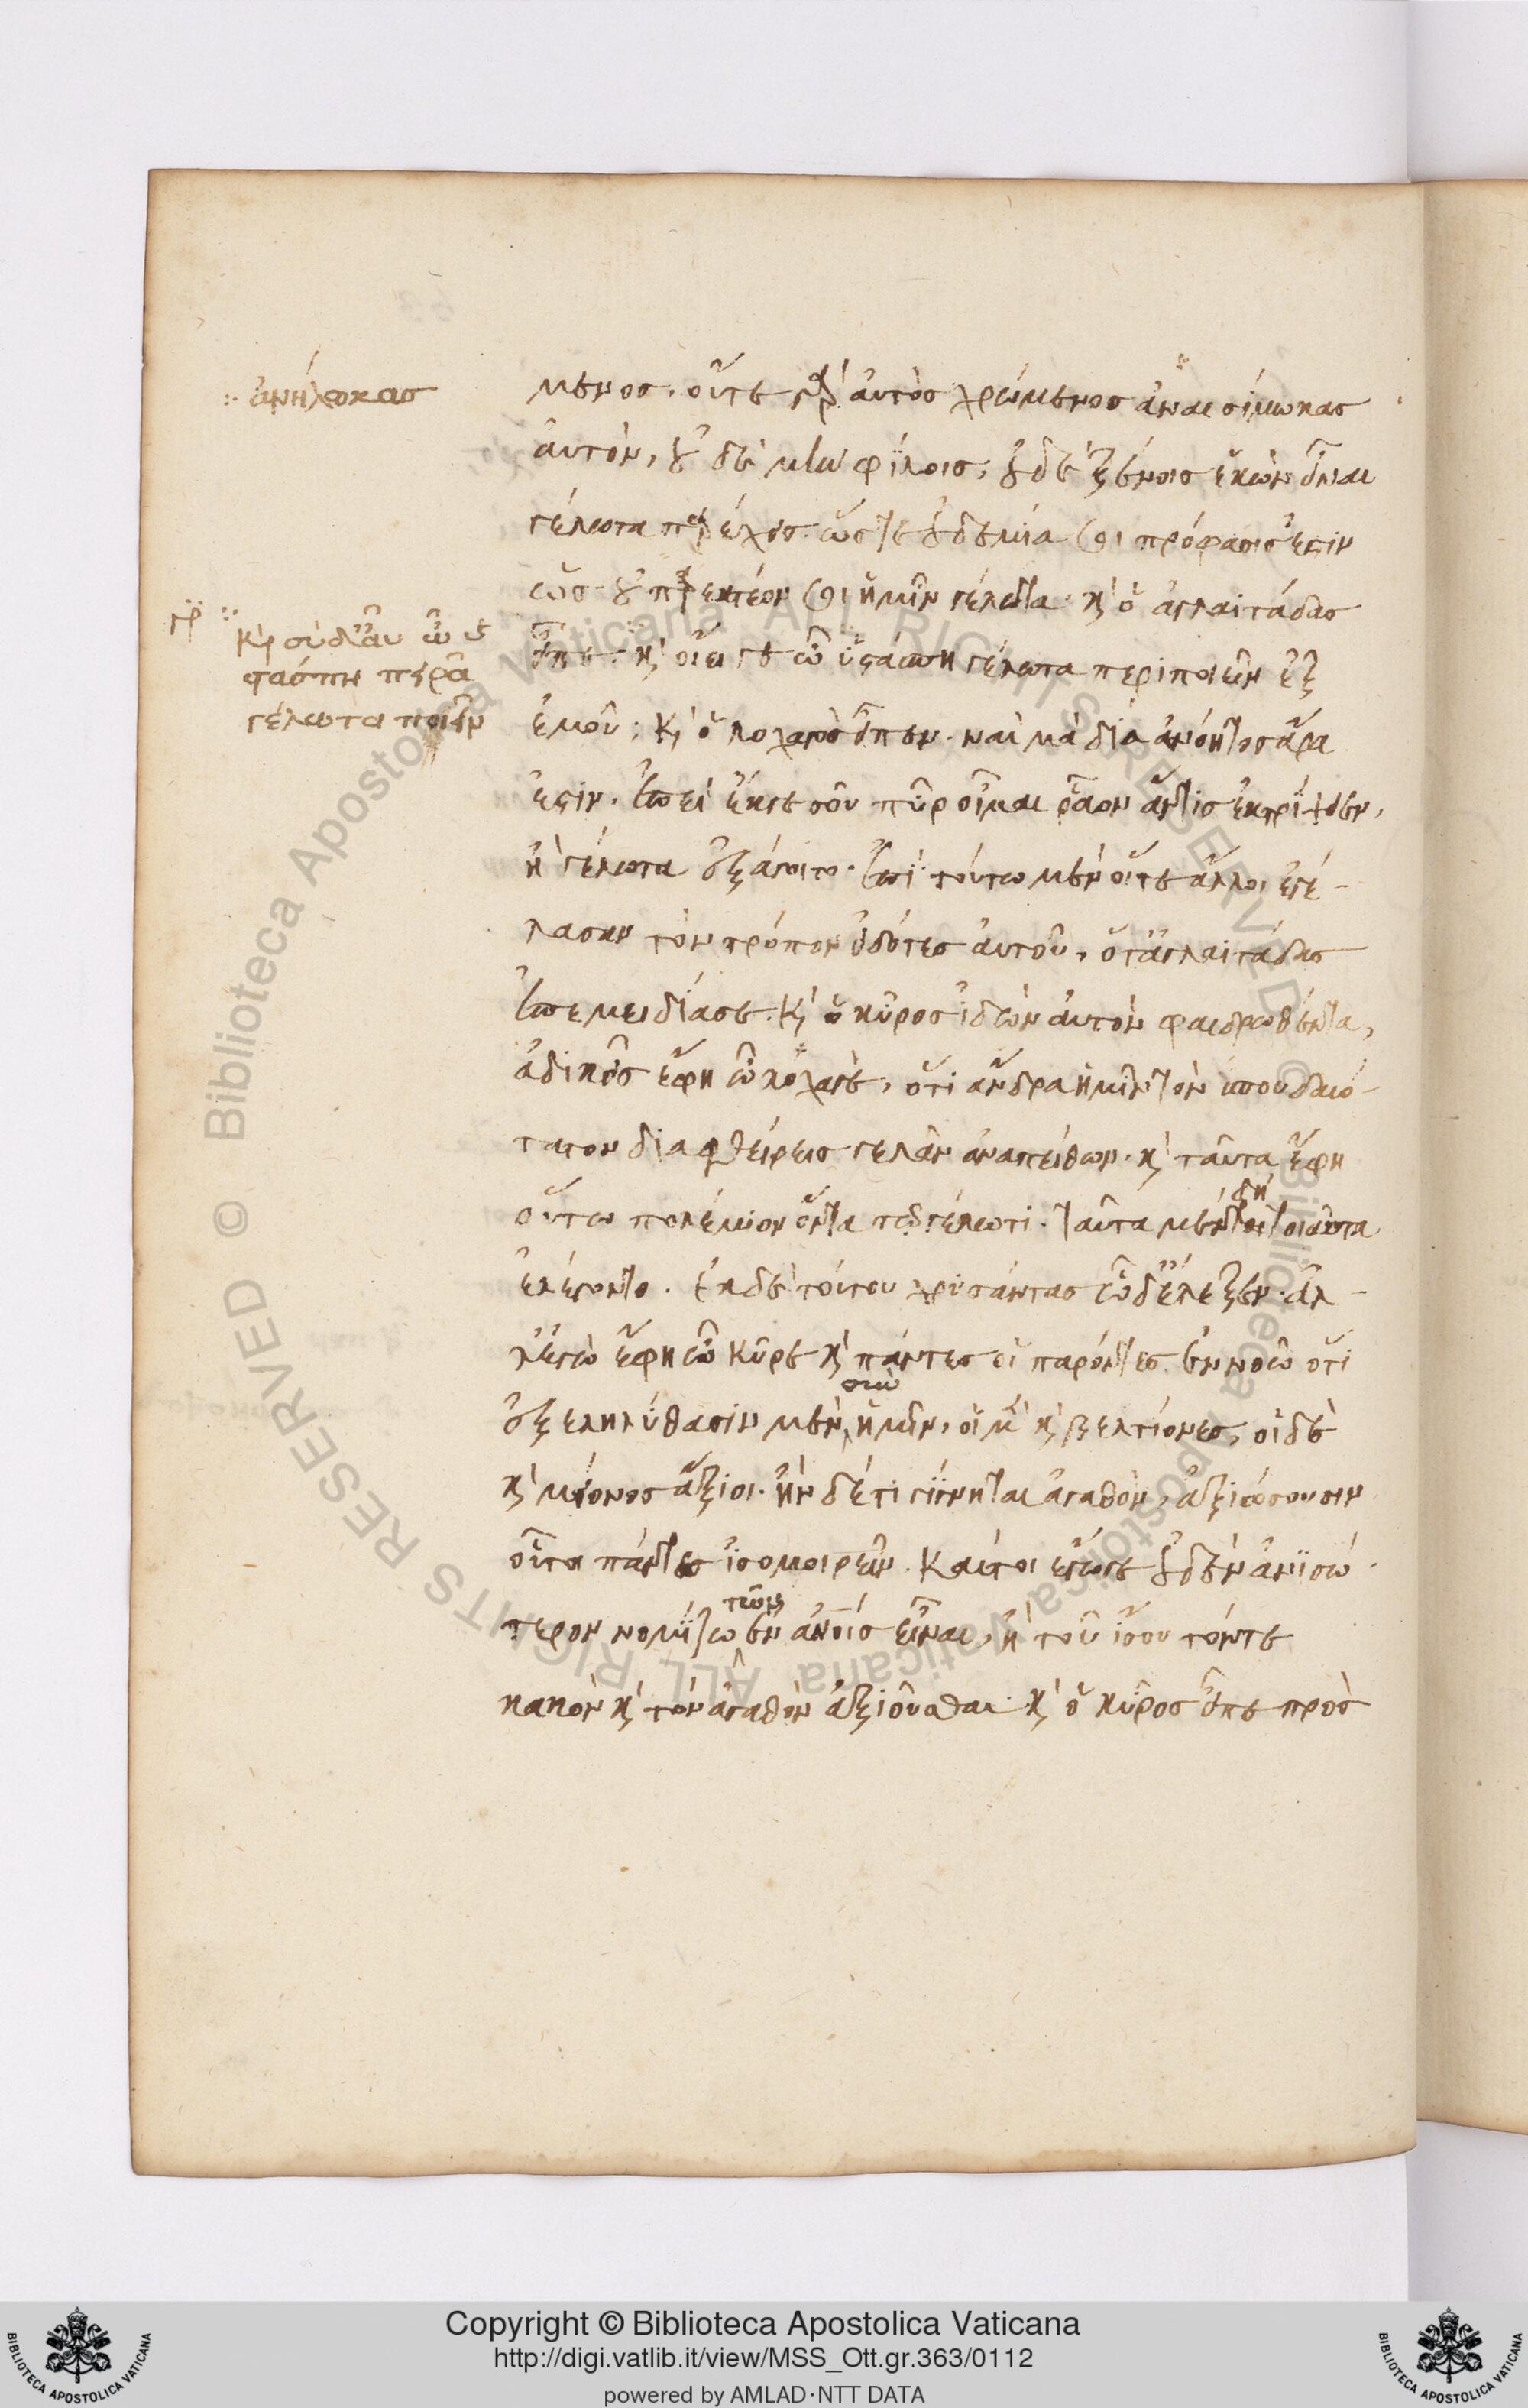 :· ἀνήλωκας
μενος. οὔτε γὰρ αὐτὸς χρώμενος ἀναισίμωκας
αὐτόν, οὐδὲ μὴν φίλοις, οὐδὲ ξένοις ἑκὼν εἶναι
γέλωτα παρέχεις. ὥστε οὐδεμία σοι πρόφασίς ἐστιν
ὡς οὐ παρεκτέον σοι ἡμῖν γέλωτα. κ̀ ὁ ἀγλαϊτάδας
εἶπε. κ̀ οἴει γε ὦ ὑστάσπη γέλωτα περιποιεῖν ἐξ
γρ ∴ κ̀ σὺ δἂν ὦ ὑ
στάσπη πειρᾷ
γέλωτα ποιεῖν
ἐμοῦ; κ̀ ὁ λοχαγὸς εἶπεν. ναὶ μὰ δία ἀνόητος ἄρα
ἐστίν. ἐπεὶ ἔκ γε σοῦ πῦρ οἶμαι ῥᾷον ἄν τις ἐκτρίψειεν,
ἢ γέλωτα ἐξάγοιτο. ἐπὶ τούτω μὲν οἵτε ἄλλοι ἐγέ-
λασαν τὸν τρόπον εἰδότες αὐτοῦ, ὅτ' ἀγλαϊτάδας
ἐπεμειδίασε. κ̀ ὁ κῦρος ἰδὼν αὐτὸν φαιδρωθέντα,
ἀδικεῖς ἔφη ὦ λοχαγέ, ὅτι ἄνδρα ἡμῖν τὸν σπουδαιό-
τατον διαφθείρεις γελᾶν ἀναπείθων. κ̀ ταῦτα ἔφη
οὕτω πολέμιον ὄντα τῷ γέλωτι. ταῦτα μὲν δὴ τοιαῦτα
ἐλέγοντο. ἐκ δὲ τούτου χρυσάντας ὧδ' ἔλεξεν. ἀλ-
λ' ἐγὼ ἔφη ὦ κῦρε κ̀ πάντες οἱ παρόντες ἐννοῶ ὅτι
ἐξεληλύθασιν μὲν σὺν ἡμῖν, οἱ μὲν κ̀ βελτίονες, οἱ δὲ
κ̀ μείονος ἄξιοι. ἢν δέ τι γίνηται ἀγαθόν, ἀξιώσουσιν
οὗτοι πάντες ἰσομοιρεῖν. καίτοι ἔγωγε οὐδὲν ἀνισώ-
τερον νομίζω τῶν ἐν ἀνοις εἶναι, ἢ τοῦ ἴσου τόντε
κακὸν κ̀ τὸν ἀγαθὸν ἀξιοῦσθαι. κ̀ ὁ κῦρος εἶπε πρὸς
Copyright © Biblioteca Apostolica Vaticana
http://digi.vatlib.it/view/MSS_Ott.gr.363/0112
powered by AMLAD·NTT DATA
BIBLIOTECA APOSTOLICA VATICANA
BIBLIOTECA APOSTOLICA VATICANA
Biblioteca Apostolica Vaticana ALL RIGHTS RESERVED ©
Biblioteca Apostolica Vaticana ALL RIGHTS RESERVED ©